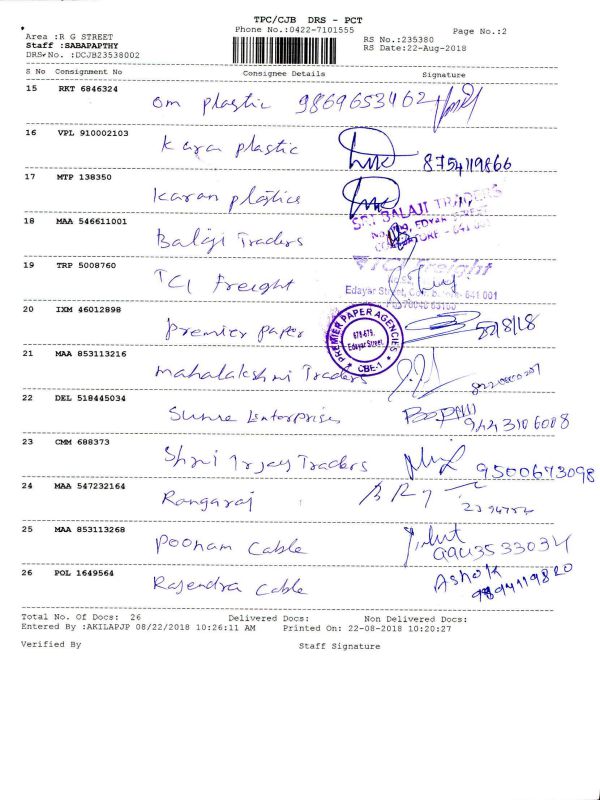 TPC/CJB DRS - PCT
Phone No.:0422-7101555
Page No.:2
Area :R G STREET
Staff :SABAPAPTHY
DRS No. :DCJB23538002
RS No.:235380
RS Date:22-Aug-2018
S No Consignment No Consignee Details Signature
15 RKT 6846324
Om plastic 9869653462
16 VPL 910002103
Karan plastic 8754119866
17 MTP 138350
Karan plastics
SRI BALAJI TRADERS
18 MAA 546611001
Balaji Traders
19 TRP 5008760
TCI Freight
TCI Freight
Edayar Street, 641 001
20 IXM 46012898
premier paper
PREMIER PAPER AGENCIES
Edayar Street,
CBE-1
22/8/18
21 MAA 853113216
Mahalakshmi Traders
22 DEL 518445034
Enterprises 9443106008
23 CMM 688373
Shri Traders 9500673098
24 MAA 547232164
Rangaraj
25 MAA 853113268
Poonam Cable
26 POL 1649564
Rajendra Cable Ashok
Total No. Of Docs: 26 Delivered Docs: Non Delivered Docs:
Entered By :AKILAPJP 08/22/2018 10:26:11 AM Printed On: 22-08-2018 10:20:27
Verified By Staff Signature